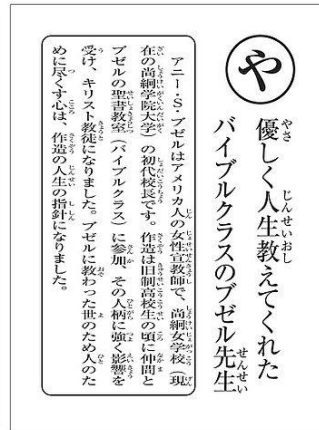 や
優しく人生教えてくれた
バイブルクラスのブゼル先生
アニー・S・ブゼルはアメリカ人の女性宣教師で、尚絅女学校（現
在の尚絅学院大学）の初代校長です。作造は旧制高校生の頃に仲間と
ブゼルの聖書教室（バイブルクラス）に参加、その人柄に強く影響を
受け、キリスト教徒になりました。ブゼルに教わった世のため人のた
めに尽くす心は、作造の人生の指針になりました。